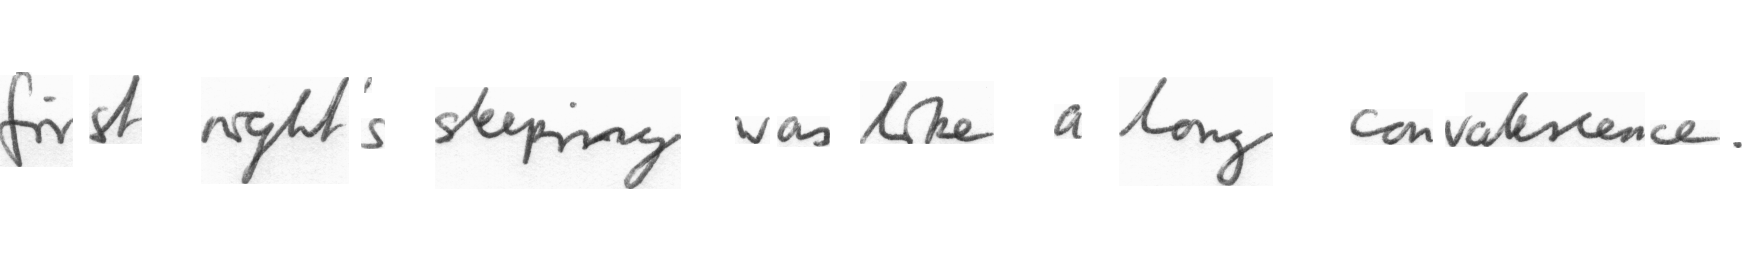 first night's sleeping was like a long convalescence.